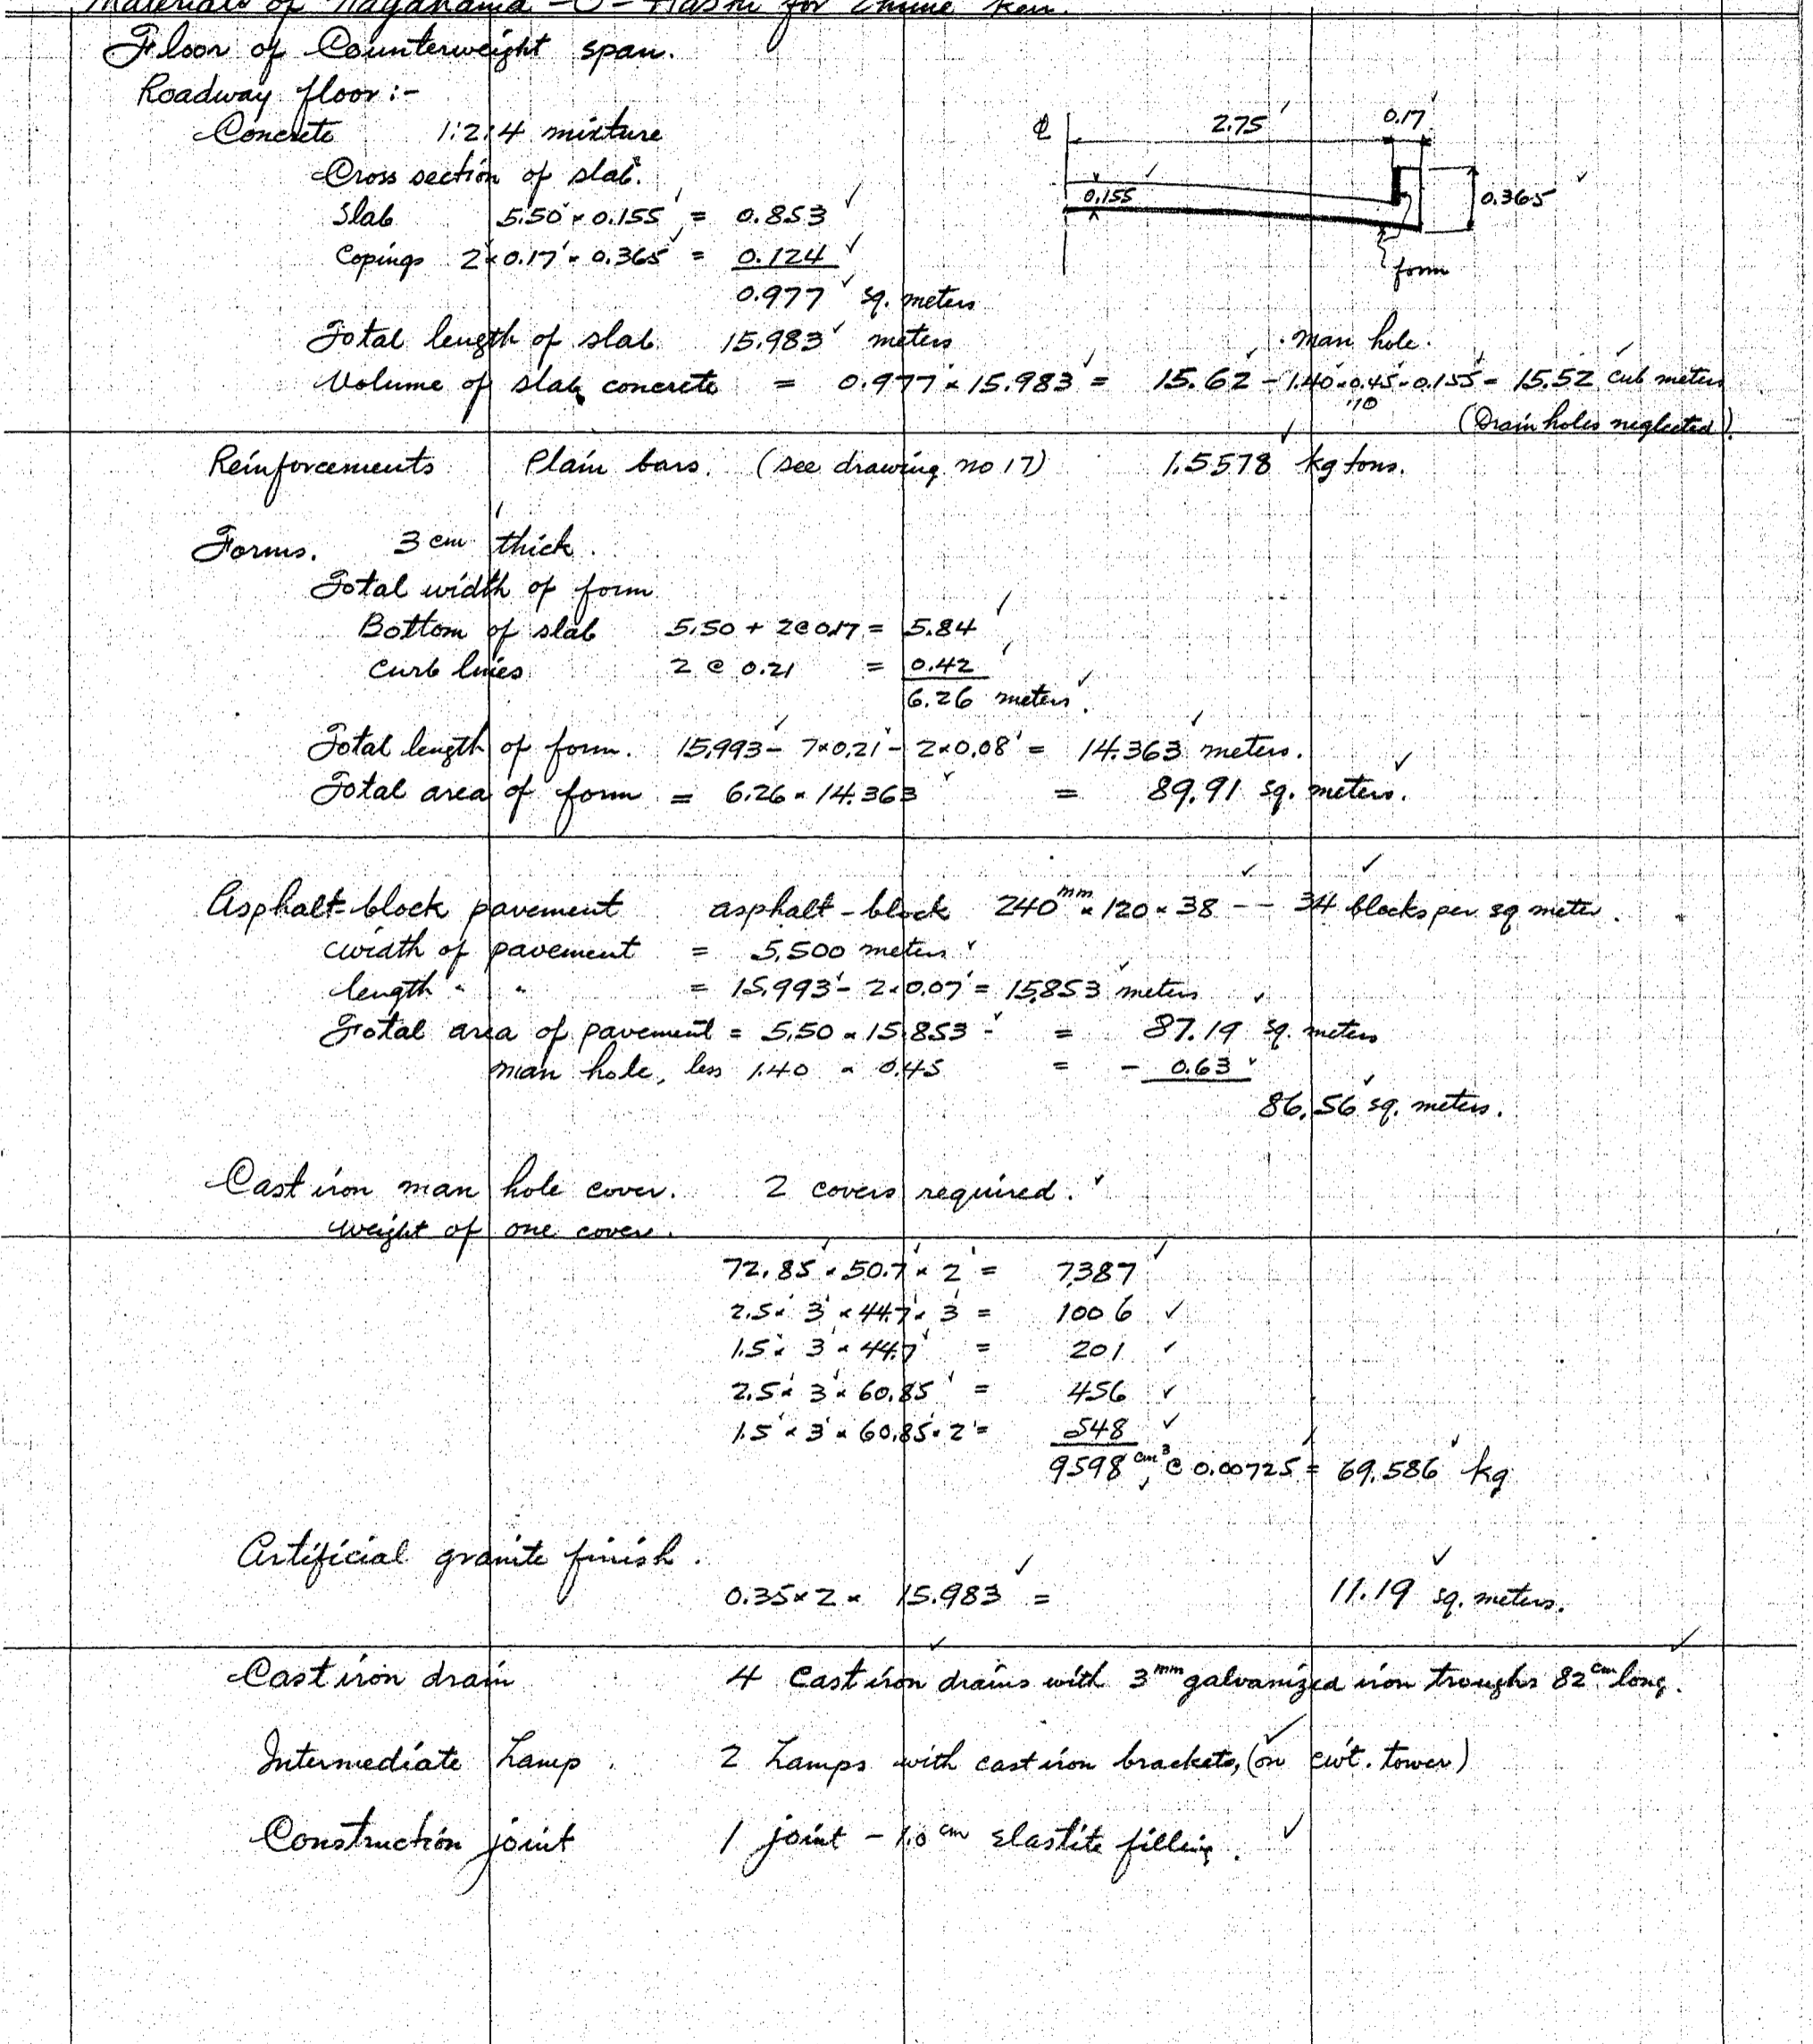 Materials of Nagahama-O-Hashi for Ehime Ken.
Floor of Counterweight span.
Roadway floor:-
Concrete 1:2:4 mixture
Cross section of slab.
Slab 5.50 × 0.155 = 0.853
Copings 2 × 0.17 × 0.365 = 0.124
0.977 sq. meters
℄ 2.75 0.17
0.155 0.365
form
Total length of slab 15.983 meters
man hole.
Volume of slab concrete = 0.977 × 15.983 = 15.62 - 1.40×0.45×0.155 = 15.52 cub meters
.10
(Drain holes neglected)
Reinforcements Plain bars. (see drawing no 17) 1.5578 kg tons.
Forms. 3 cm thick.
Total width of form
Bottom of slab 5.50 + 2@0.17 = 5.84
Curb lines 2 @ 0.21 = 0.42
6.26 meters.
Total length of form. 15.993 - 7×0.21 - 2×0.08 = 14.363 meters.
Total area of form = 6.26 × 14.363 = 89.91 sq. meters.
Asphalt-block pavement asphalt-block 240mm × 120 × 38 -- 34 blocks per sq meter.
Width of pavement = 5.500 meters
length " " = 15.993 - 2×0.07 = 15.853 meters
Total area of pavement = 5.50 × 15.853 - = 87.19 sq. meters
man hole, less 1.40 × 0.45 = - 0.63
86.56 sq. meters.
Cast iron man hole cover. 2 covers required.
Weight of one cover.
72.85 × 50.7 × 2 = 7387
2.5 × 3 × 44.7 × 3 = 1006
1.5 × 3 × 44.7 = 201
2.5 × 3 × 60.85 = 456
1.5 × 3 × 60.85 × 2 = 548
9598 cm³ @ 0.00725 = 69.586 kg
Artificial granite finish.
0.35 × 2 × 15.983 = 11.19 sq. meters.
Cast iron drain 4 Cast iron drains with 3mm galvanized iron troughs 82cm long.
Intermediate Lamp. 2 Lamps with cast iron brackets, (on cwt. tower)
Construction joint 1 joint - 1.0 cm elastite filling.